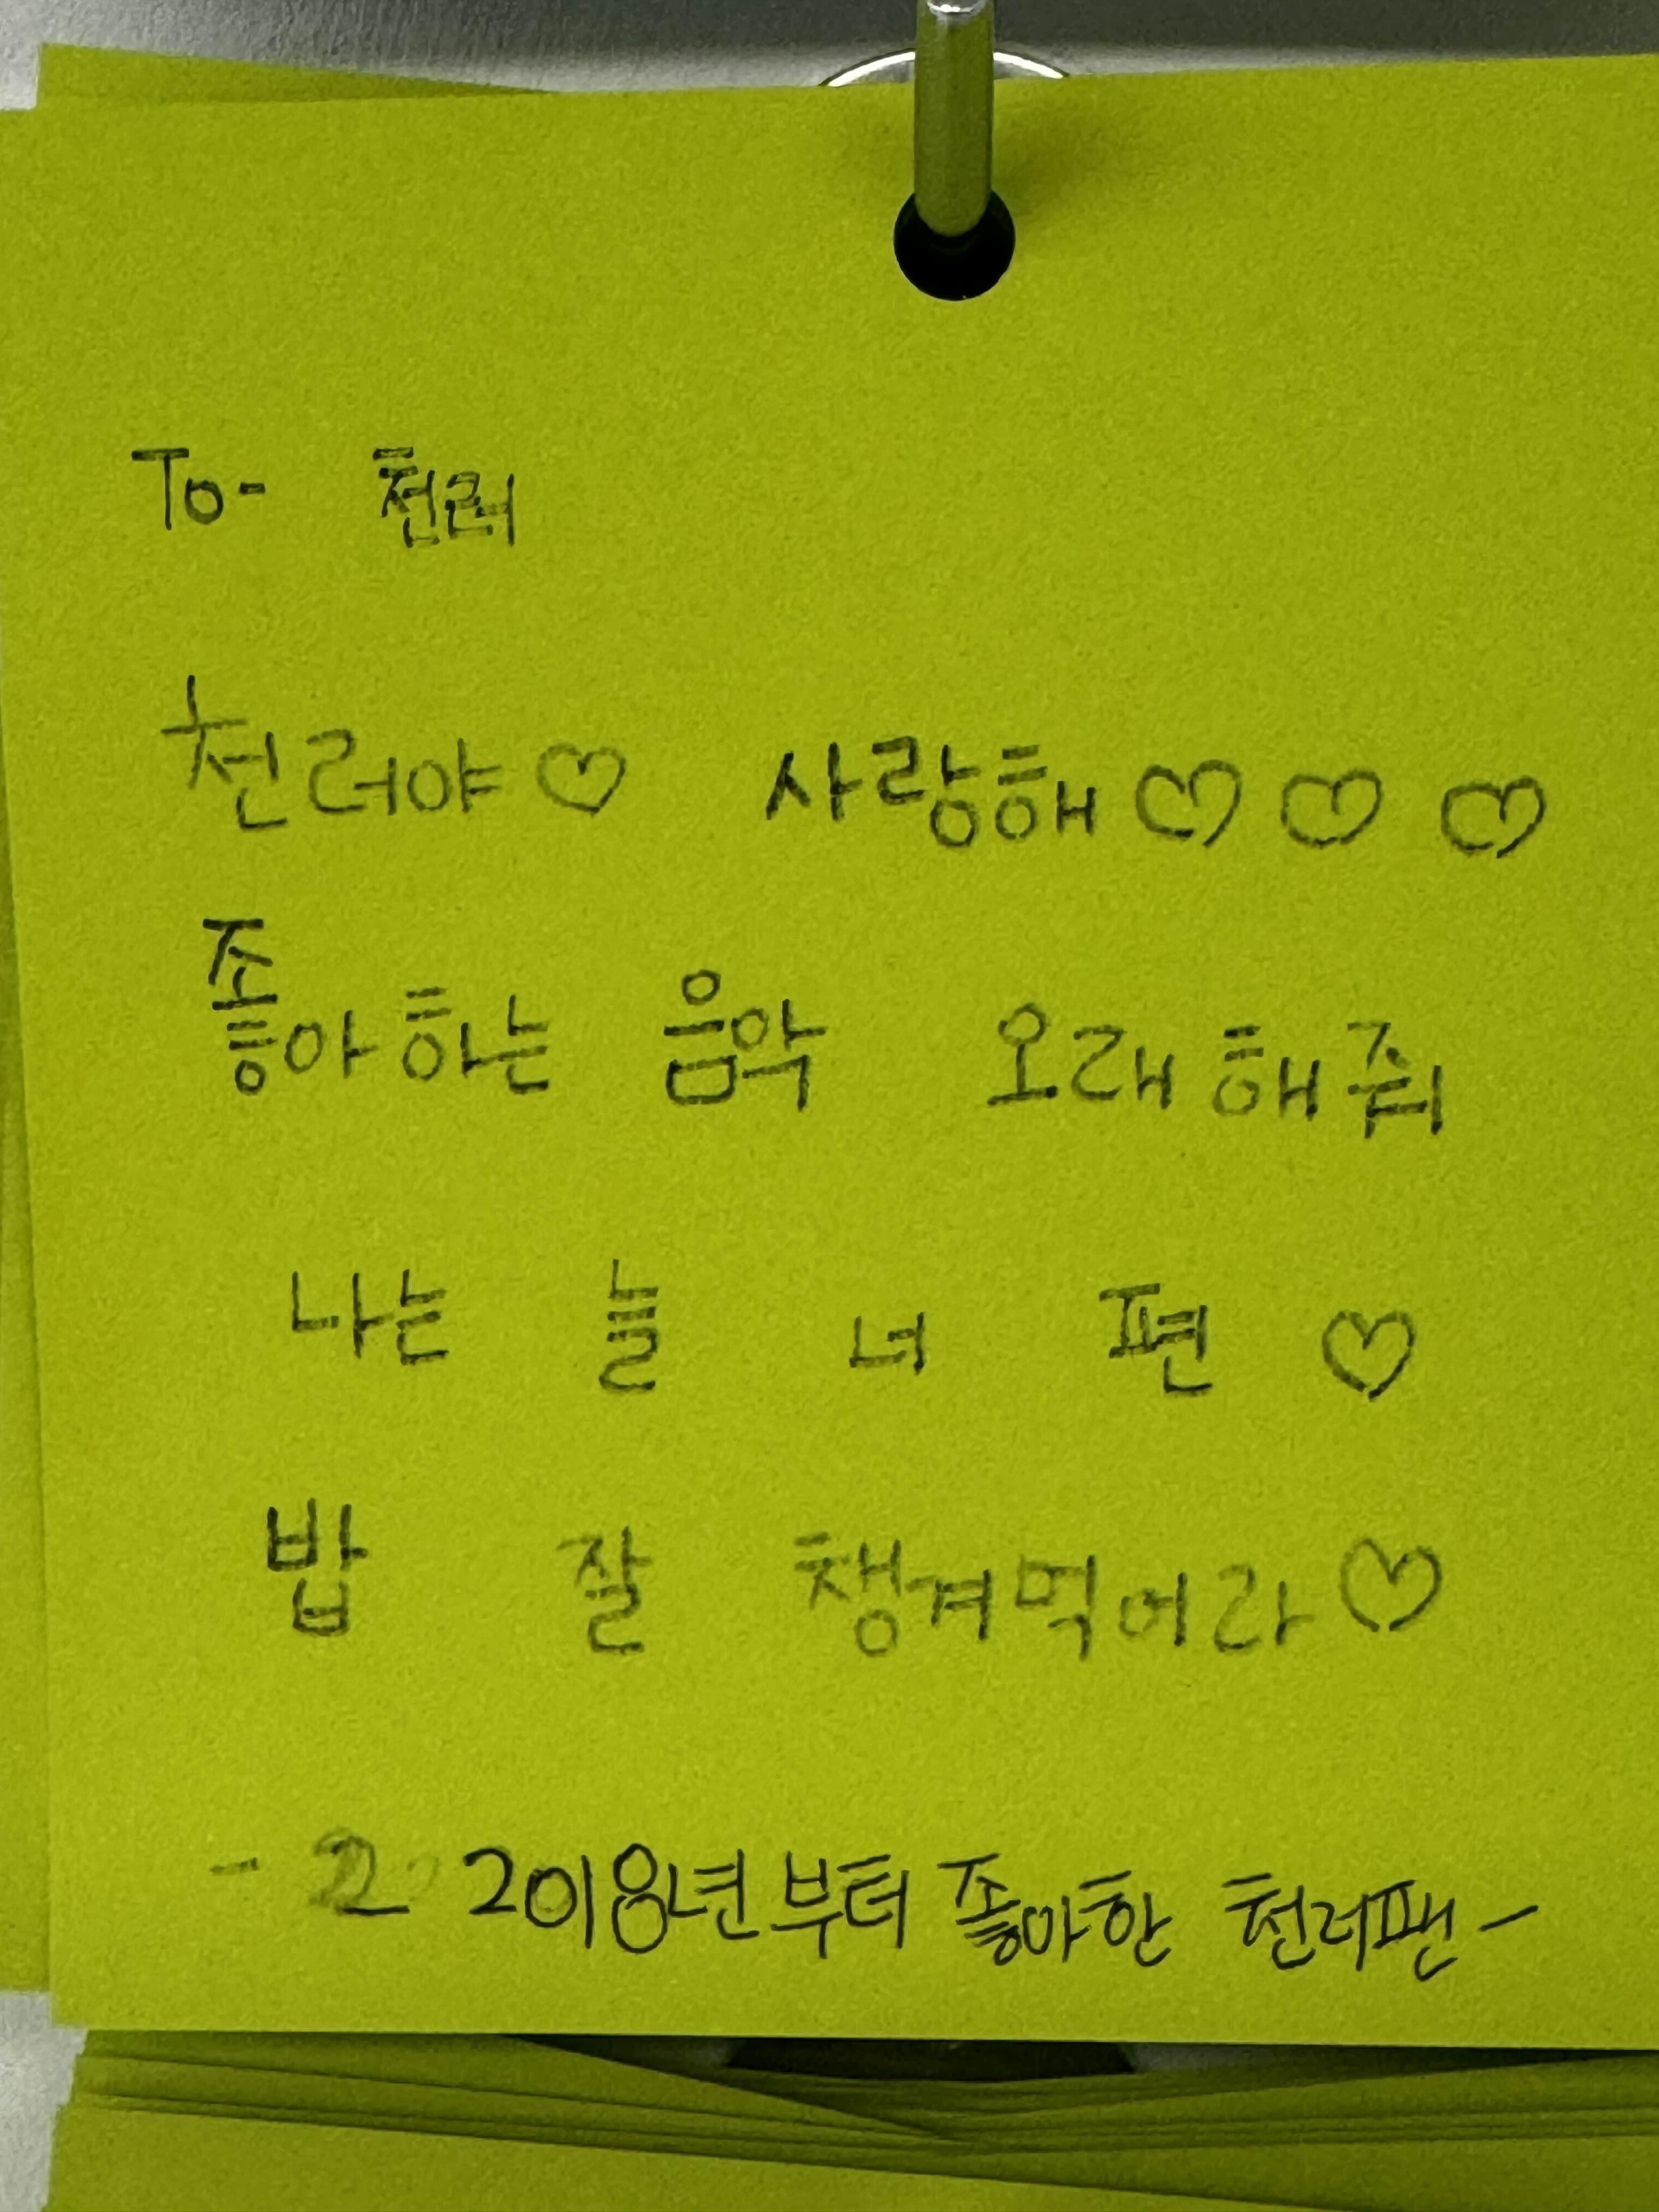 To- 천러
천러야♡ 사랑해♡♡♡
좋아하는 음악 오래해줘
나는 늘 너 편 ♡
밥 잘 챙겨먹어라♡
- 2018년부터 좋아한 천러팬-